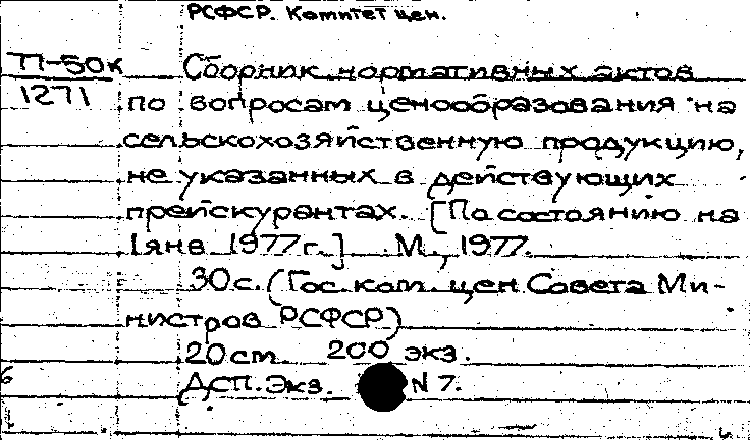 РСФСР. Комитет цен.
П-50к
1271
Сборник нормативных актов
по вопросам ценообразования на
сельскохозяйственную продукцию,
не указанных в действующих
прейскурантах. [По состоянию на
1 янв 1977г.] М., 1977.
30с. (Гос. ком. цен Совета Ми-
нистров РСФСР)
20 cm. 200 экз.
ДСП. Экз. N 7.